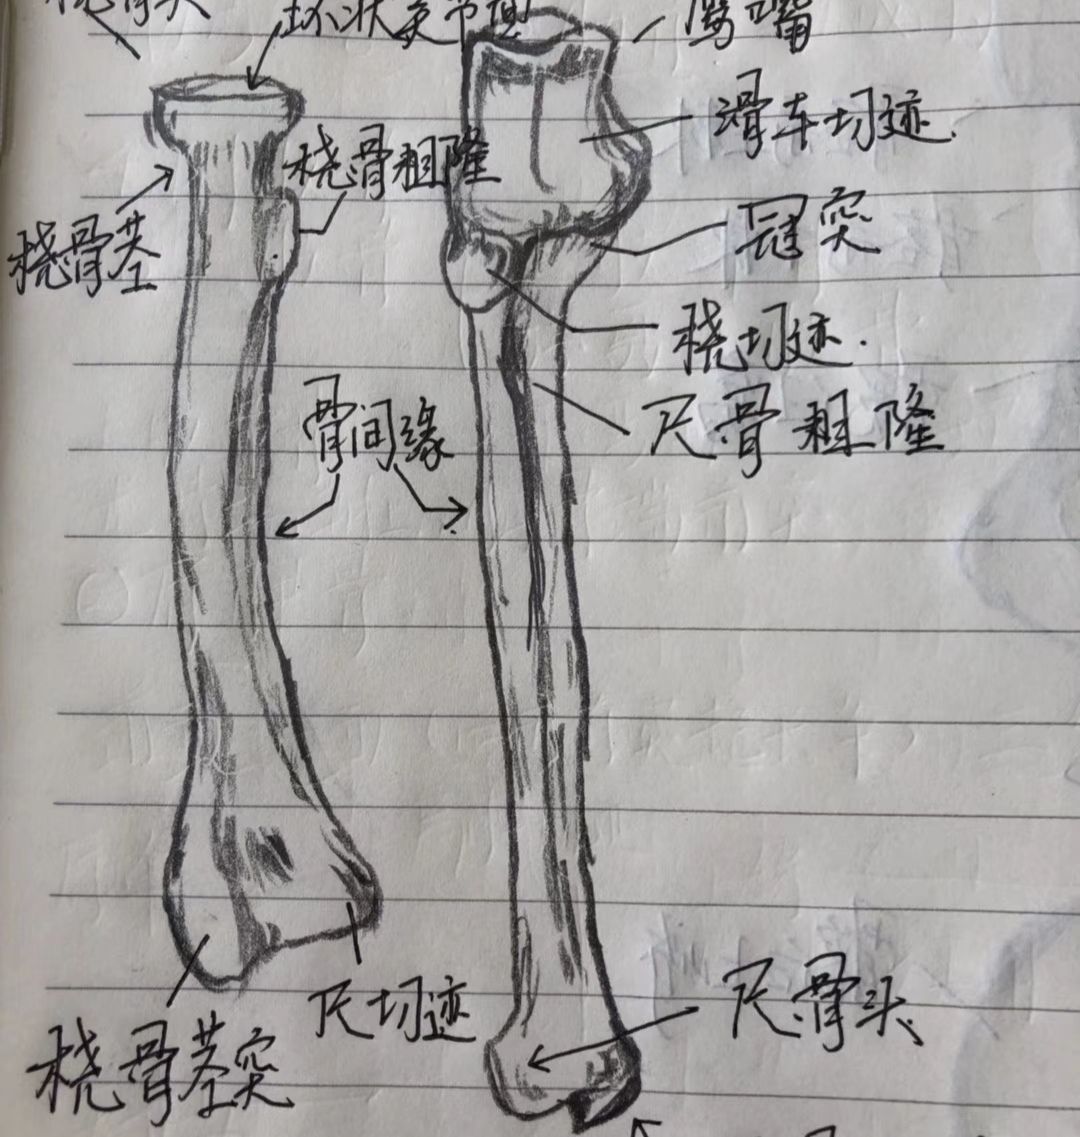 环状关节面
鹰嘴
滑车切迹.
桡骨粗隆
冠突
桡骨茎
桡切迹.
骨间缘
尺骨粗隆
尺切迹
尺骨头
桡骨茎突